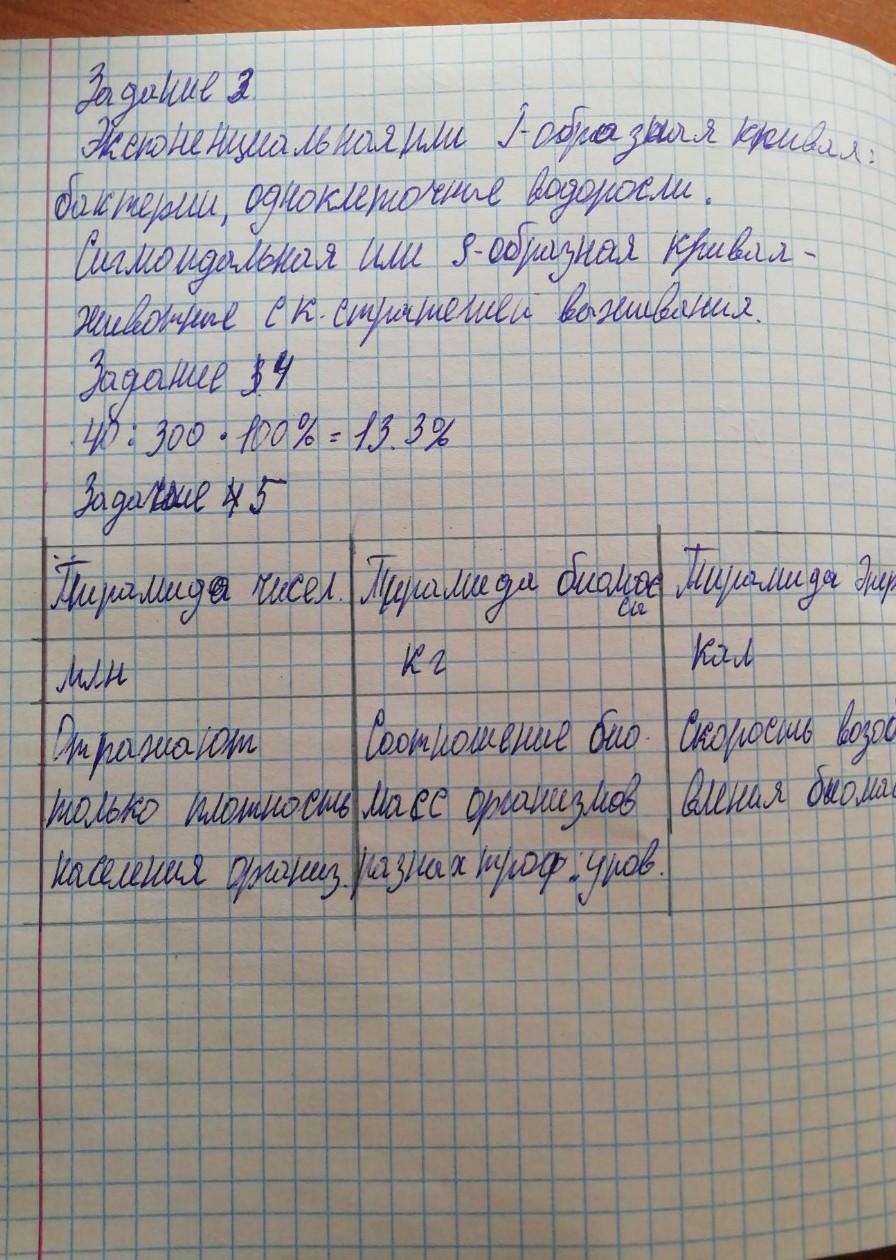 Задание 3
Экспоненциальная или J-образная кривая:
бактерии, одноклеточные водоросли.
Сигмоидальная или S-образная кривая -
животные с к. стратегией выживания.
Задание 4
40 : 300 · 100% = 13.3%
Задание 5
Пирамида чисел. Пирамида биомасса Пирамида энер
млн кг кал
Отражают Соотношение био- Скорость возос
только плотность масс организмов вления биомас
населения организ. разнах троф. уров.